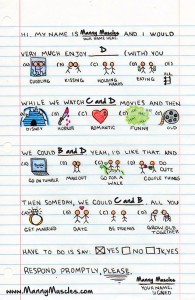 HI, MY NAME IS Manny Muscles AND I WOULD
YOUR NAME HERE
VERY MUCH ENJOY D (WITH) YOU
(A) (B) (C) (D) (E)
CUDDLING KISSING HOLDING HANDS EATING ALL
WHILE WE WATCH C and D MOVIES AND THEN
(A) (B) (C) (D) (E)
DISNEY HORROR ROMANTIC FUNNY OLD
WE COULD B and D. YEAH, I'D LIKE THAT. AND
(A) (B) (C) (D) DO CUTE
GO ON TUMBLR MAKEOUT GO FOR A WALK COUPLE THINGS
THEN SOMEDAY, WE COULD C and B. ALL YOU
(A) (B) (C) (D)
GET MARRIED DATE BE FRIENDS GROW OLD TOGETHER
HAVE TO DO IS SAY YES NO JK, YES
RESPOND PROMPTLY, PLEASE.
Manny Muscles
YOUR NAME, SIGNED
www.MannyMuscles.com